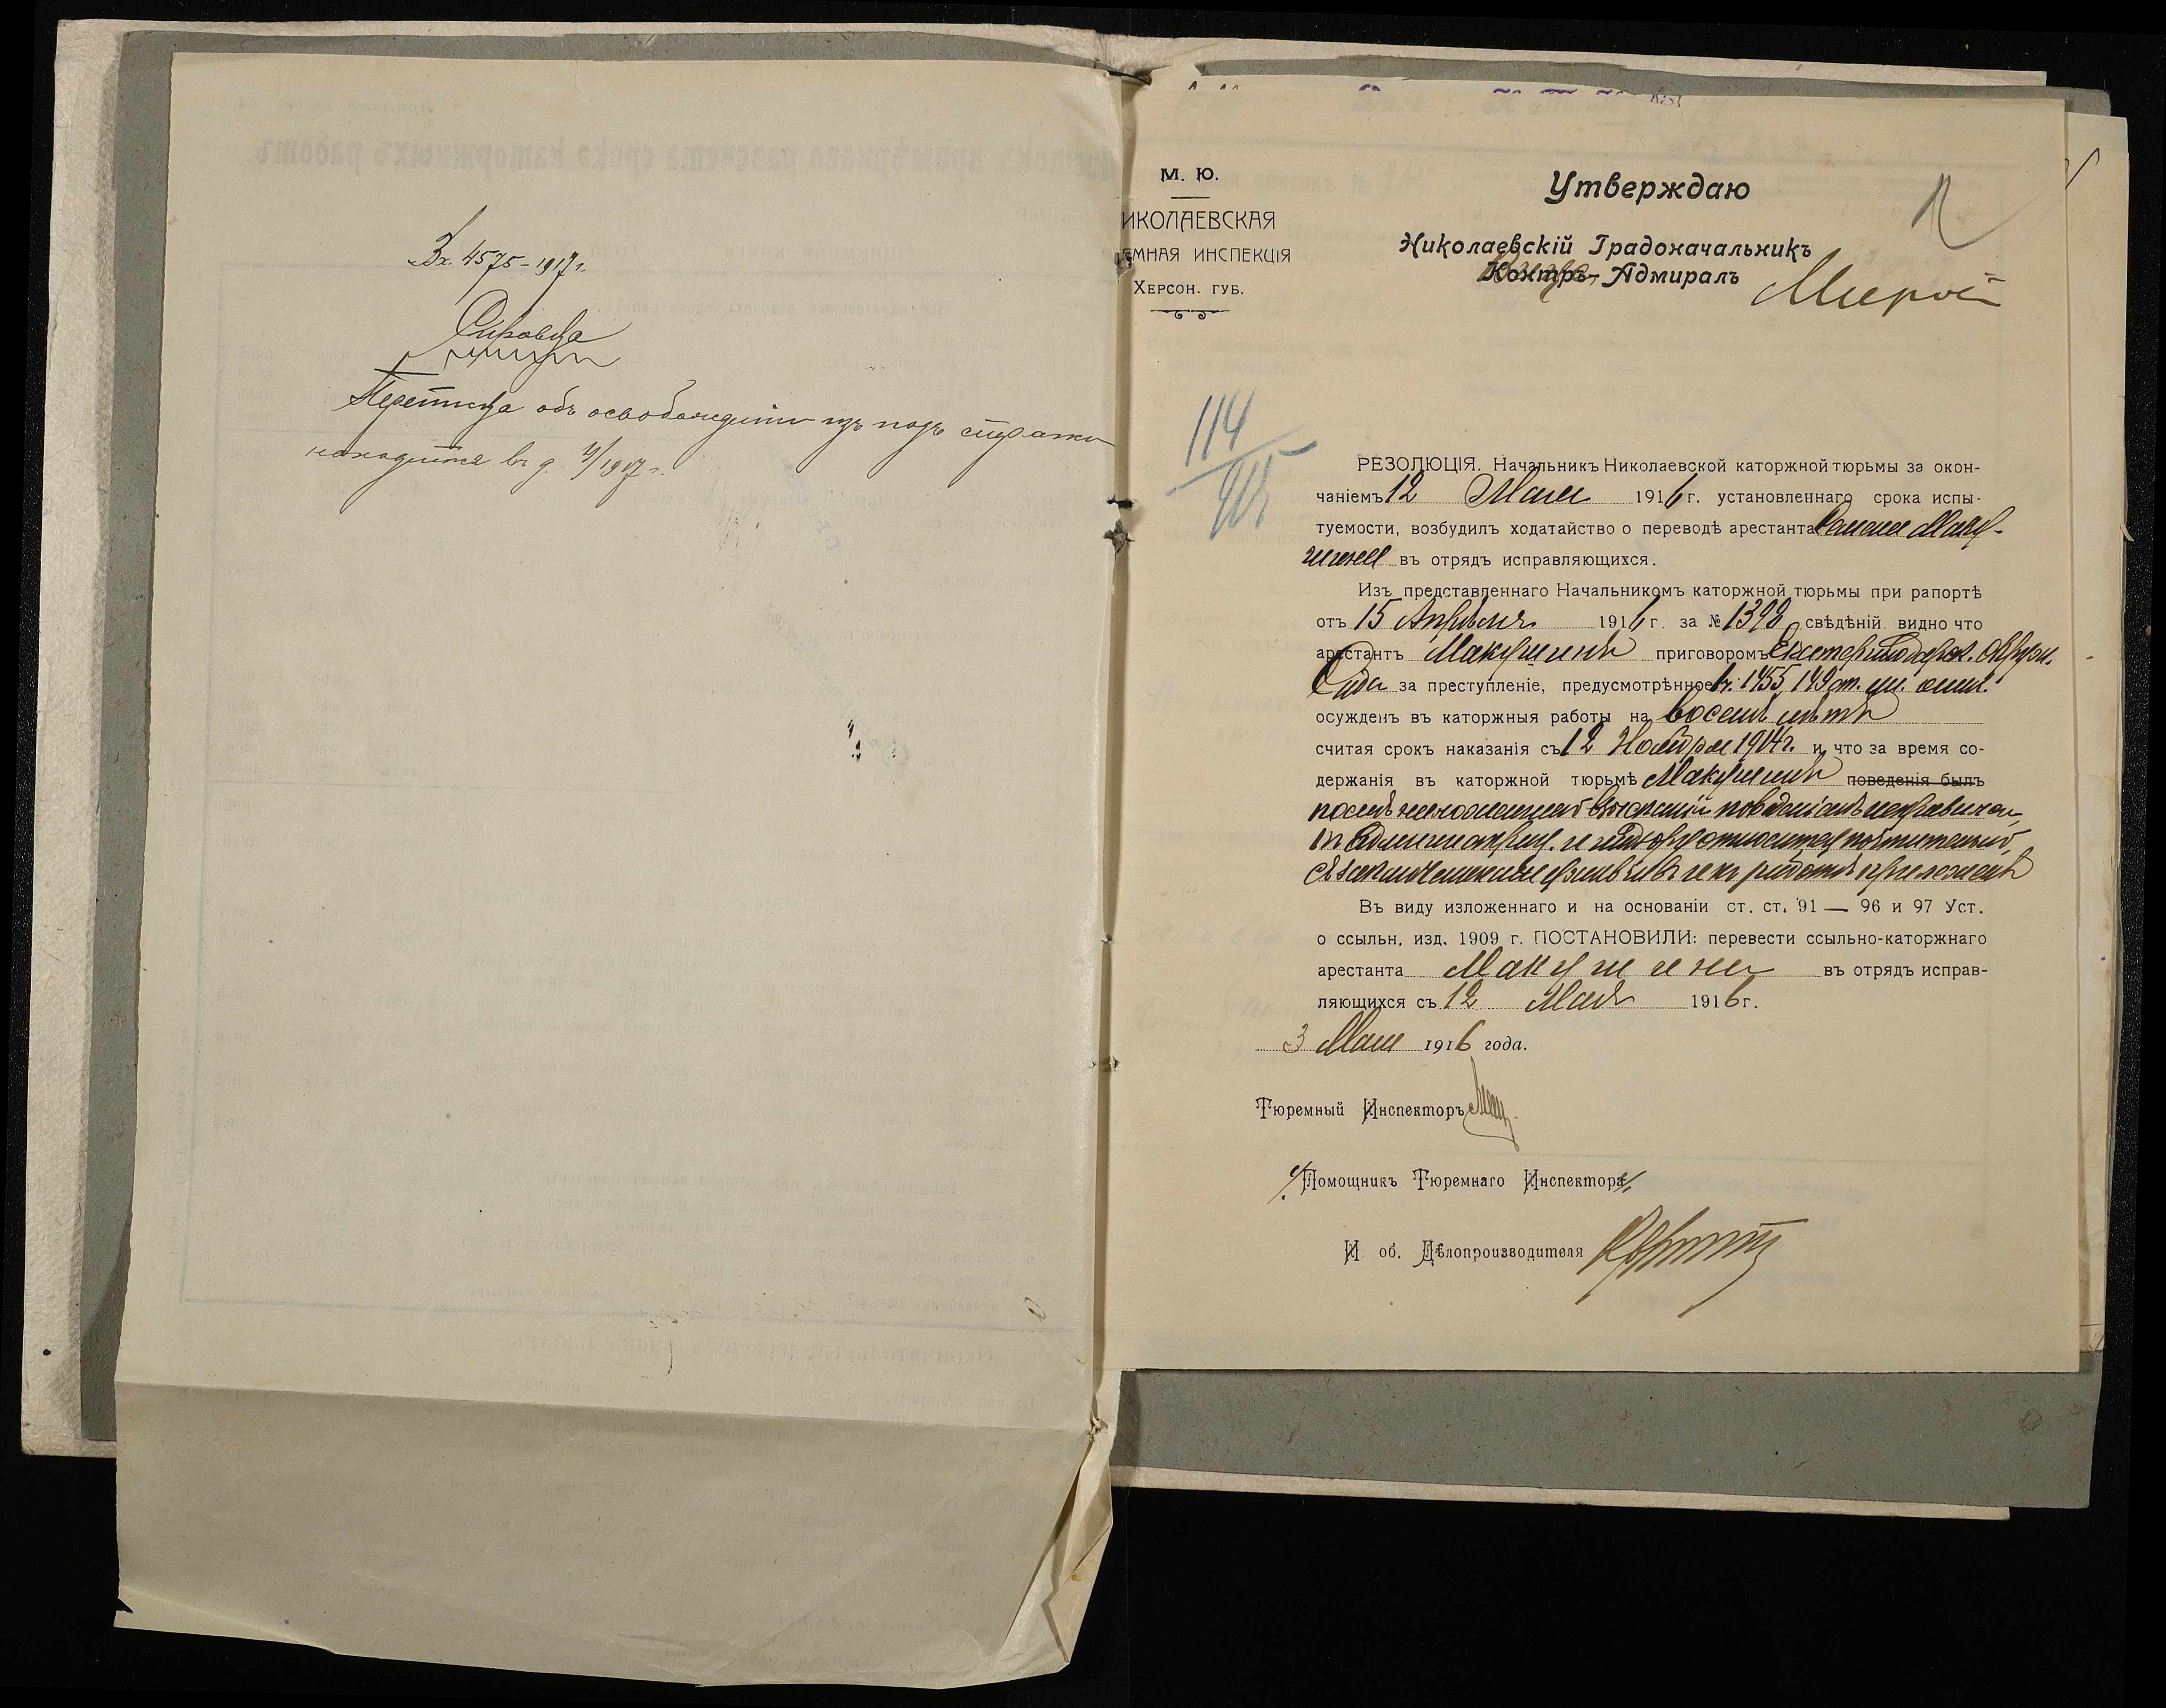 Вх. 4575 – 1917 г.
Справка
Переписка объ освобожденiи изъ подъ стражи
находится въ д. 4/1917 г.
М. Ю.
ИКОЛАЕВСКАЯ
ЕМНАЯ ИНСПЕКЦІЯ
ХЕРСОН. ГУБ.
Утверждаю
Николаевскій Градоначальникъ
Контръ-Адмиралъ
114
РЕЗОЛЮЦІЯ. Начальникъ Николаевской каторжной тюрьмы за окон-
чаніемъ 12 Мая 1916 г. установленнаго срока испы-
туемости, возбудилъ ходатайство о переводѣ арестанта Семена Маку-
шина въ отрядъ исправляющихся.
Изъ представленнаго Начальникомъ каторжной тюрьмы при рапортѣ
отъ 15 Апрѣля 1916 г. за № 1398 свѣдѣній видно что
арестантъ Макушинъ приговоромъ Екатеринодарск. Окружн.
Суда за преступленіе, предусмотрѣнное 1455, 149 ст. ул. о нак.
осужденъ въ каторжныя работы на восемь лѣтъ
считая срокъ наказанія съ 12 Ноября 1914 г. и что за время со-
держанія въ каторжной тюрьмѣ Макушинъ поведенія былъ
поведенія
къ администрац. и надзору относится почтительно,
къ работѣ прилеженъ
Въ виду изложеннаго и на основаніи ст. ст. 91 — 96 и 97 Уст.
о ссыльн, изд. 1909 г. ПОСТАНОВИЛИ: перевести ссыльно-каторжнаго
арестанта Макушина въ отрядъ исправ-
ляющихся съ 12 Мая 1916 г.
3 Мая 1916 года.
Тюремный Инспекторъ
Помощникъ Тюремнаго Инспектора
И об. Дѣлопроизводителя